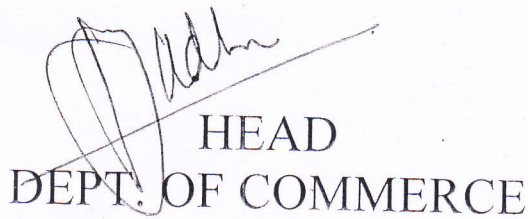 HEAD
DEPT. OF COMMERCE